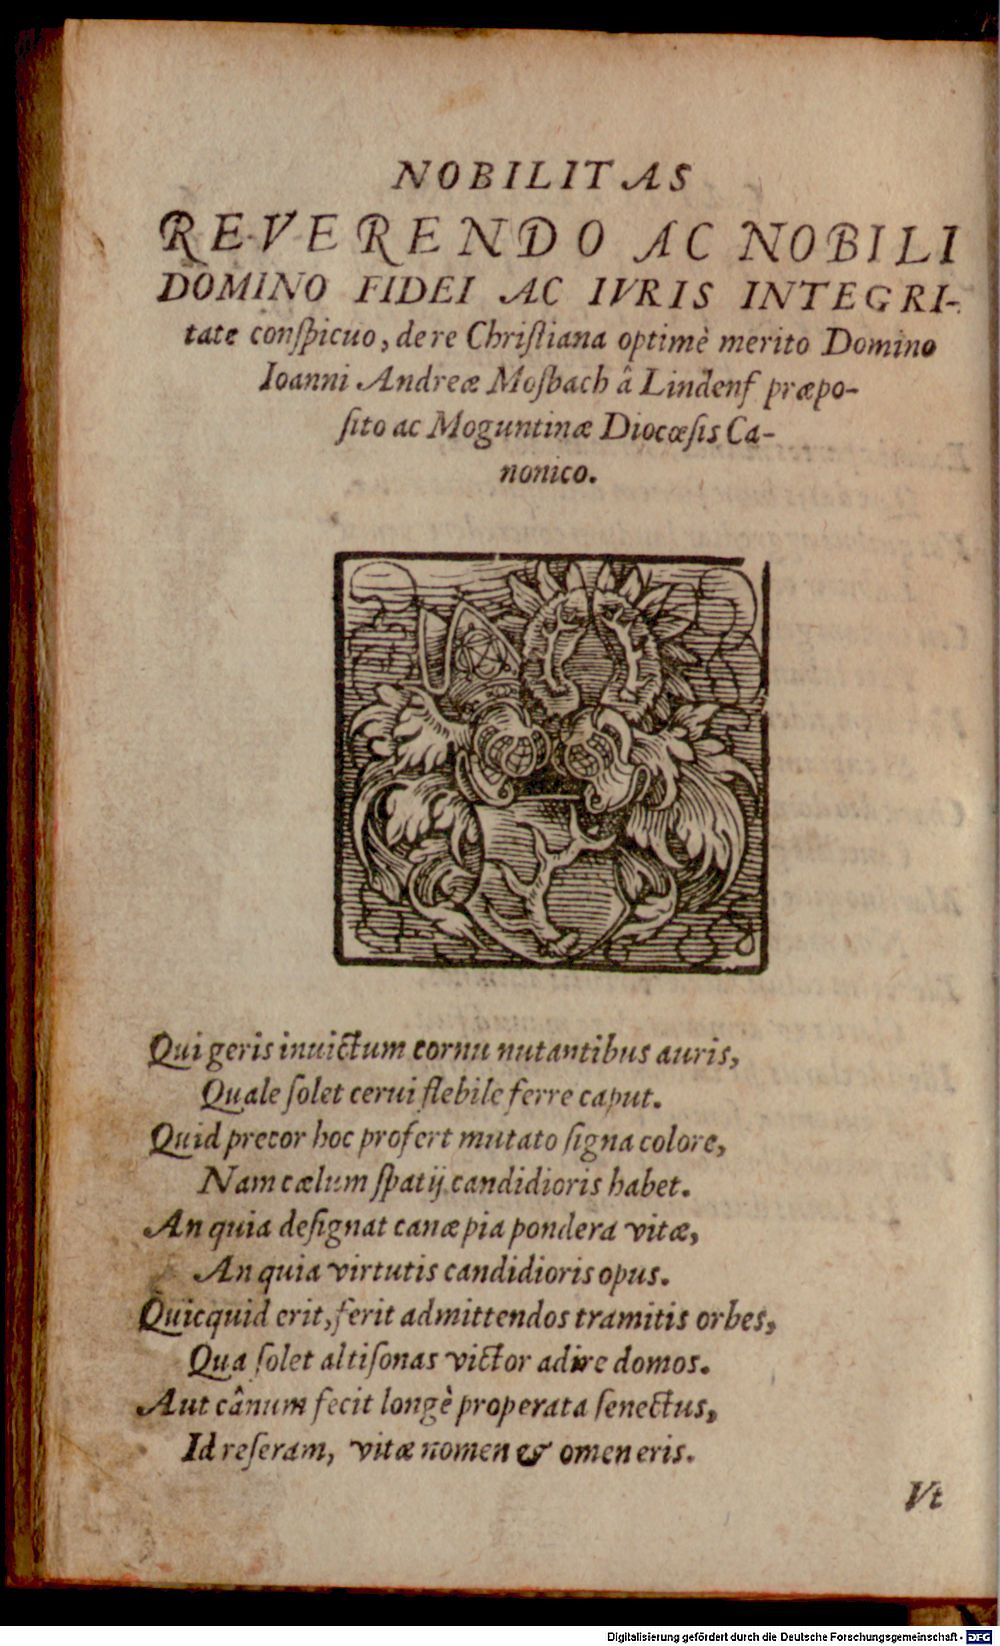 NOBILITAS
REVERENDO AC NOBILI
DOMINO FIDEI AC IVRIS INTEGRI-
tate conſpicuo, de re Chriſtiana optimè merito Domino
Ioanni Andreæ Moſbach â Lindenf præpo-
ſito ac Moguntinæ Diocœſis Ca-
nonico.
Qui geris inuictum cornu nutantibus auris,
Quale ſolet cerui flebile ferre caput.
Quid precor hoc profert mutato ſigna colore,
Nam cælum ſpatij candidioris habet.
An quia deſignat canæ pia pondera vitæ,
An quia virtutis candidioris opus.
Quicquid erit, ferit admittendos tramitis orbes,
Qua ſolet altiſonas victor adire domos.
Aut cânum fecit longè properata ſenectus,
Id reſeram, vitæ nomen & omen eris.
Vt
Digitalisierung gefördert durch die Deutsche Forschungsgemeinschaft - DFG